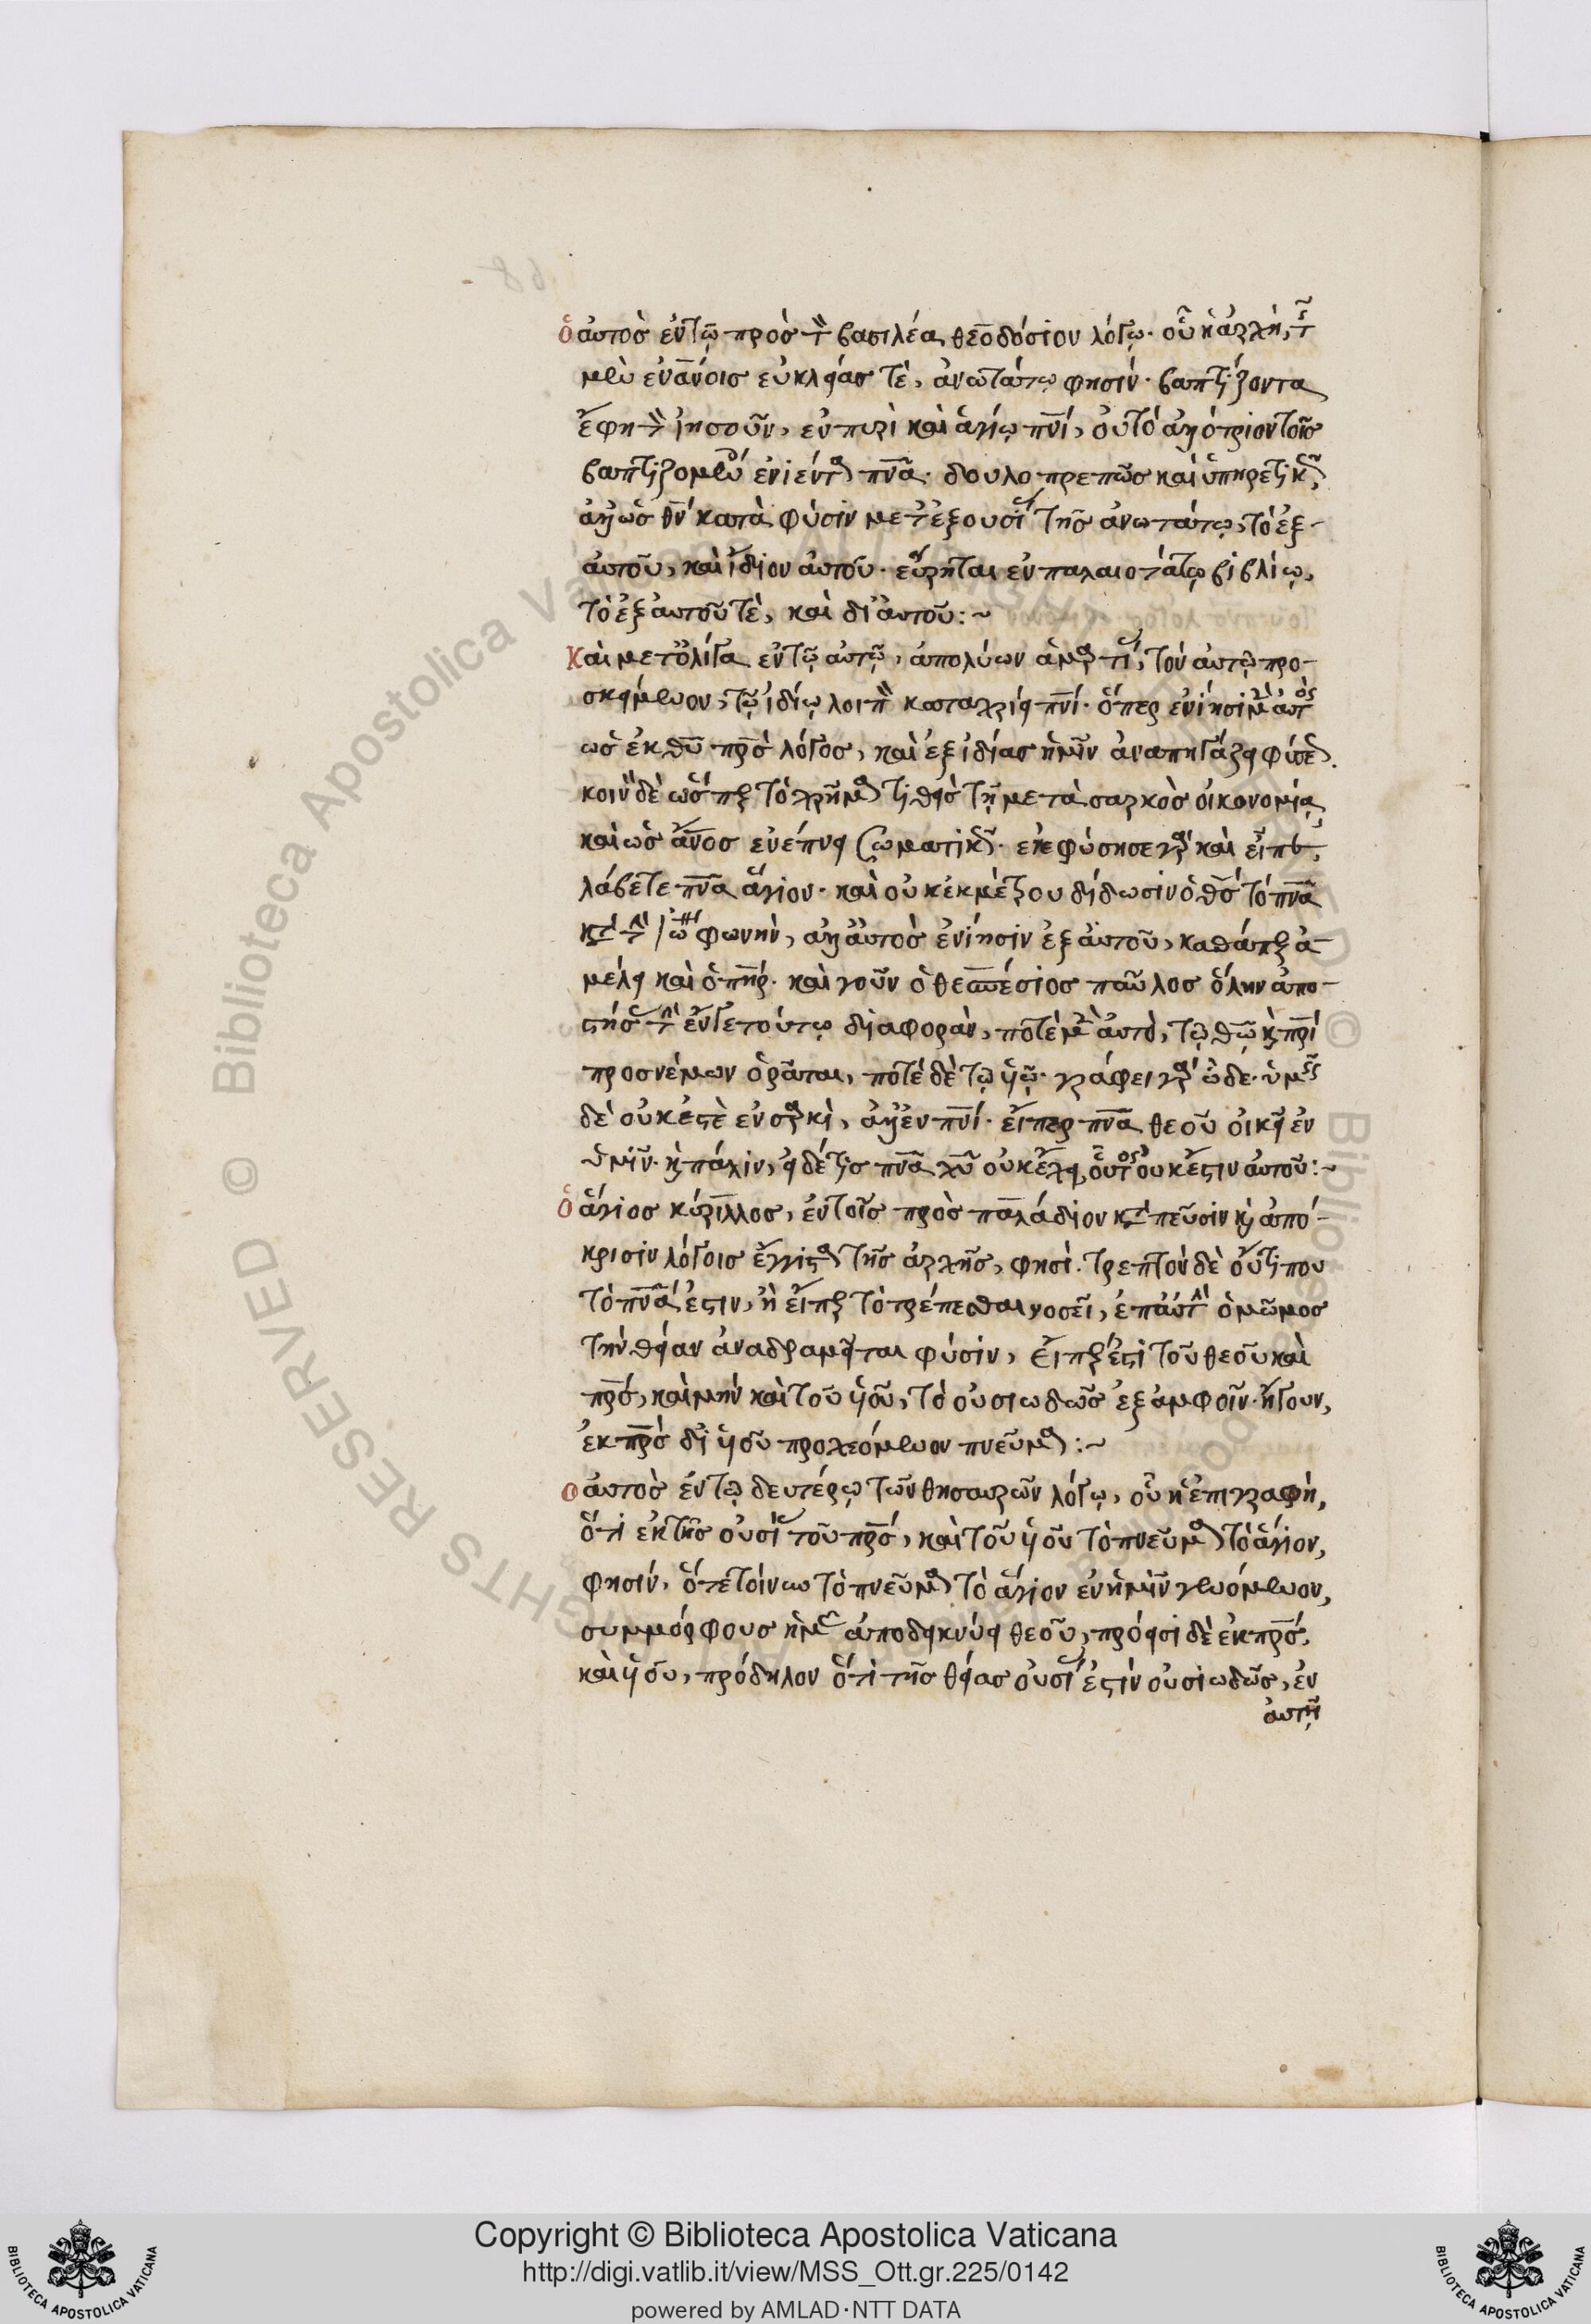 ὁ αὐτὸς ἐν τῷ πρὸς τὸν βασιλέα θεοδόσιον λόγῳ· οὗ ἡ ἀρχὴ, τῆς
μὲν ἐν ἀνοις εὐκλείας τὲ, ἀνωτάτω φησίν· βαπτίζοντα
ἔφη τὸν ἰησοῦν, ἐν πυρὶ καὶ ἁγίῳ πνι, οὐ τὸ ἀλλότριον τοῖς
βαπτιζομένοις ἐνιέντα πνα· δουλοπρεπῶς καὶ ὑπηρετικῶς,
ἀλλ' ὡς θν κατὰ φύσιν μετ' ἐξουσίας τῆς ἀνωτάτω, τὸ ἐξ
αὐτοῦ, καὶ ἴδιον αὐτοῦ· εὕρηται ἐν παλαιοτάτῳ βιβλίῳ,
τὸ ἐξ αὐτοῦ τὲ, καὶ δι' αὐτοῦ:~
Καὶ μετ' ὀλίγα ἐν τῷ αὐτῷ, ἀπολύων ἁμαρτίας, τὸν αὐτῷ προ-
σκείμενον, τῷ ἰδίῳ λοιπὸν καταχρίει πνι· ὅπερ ἐνίησι μὲν αὐτὸς
ὡς ἐκ θυ πρς λόγος, καὶ ἐξ ἰδίας ἡμῖν ἀναπηγάζει φύσεως.
κοινὸν δὲ ὥσπερ τὸ χρῆμα τιθεὶς τῇ μετὰ σαρκὸς οἰκονομίᾳ,
καὶ ὡς ἄνος ἐνέπνει σωματικῶς· ἐνεφύσησε γὰρ καὶ εἶπεν,
λάβετε πνα ἅγιον· καὶ οὐκ ἐκ μέτρου δίδωσιν ὁ θς τὸ πνα
κατὰ τὴν ἰω φωνὴν, ἀλλ' αὐτὸς ἐνίησιν ἐξ αὐτοῦ, καθάπερ ἀ-
μέλει καὶ ὁ πηρ· καὶ γοῦν ὁ θεσπέσιος παῦλος ὅλην ἀπο-
στήσας τὴν ἔν γε τούτῳ διαφορὰν, ποτὲ μὲν αὐτὸ, τῷ θω καὶ πρι
προσνέμων ὁρᾶται, ποτὲ δὲ τῷ υἱῷ· γράφει γὰρ ὧδε· ὑμεῖς
δὲ οὐκ ἐστὲ ἐν σαρκὶ, ἀλλ' ἐν πνι· εἴπερ πνα θεοῦ οἰκεῖ ἐν
ὑμῖν· καὶ πάλιν, εἰ δέ τις πνα χυ οὐκ ἔχει, οὗτος οὐκ ἔστιν αὐτοῦ:~
Ὁ ἅγιος κύριλλος, ἐν τοῖς πρὸς παλάδιον κατὰ πεῦσιν καὶ ἀπό-
κρισιν λόγοις ἔγγιστα τῆς ἀρχῆς, φησὶ· τρεπτὸν δὲ οὔτι που
τὸ πνα ἐστιν, ἢ εἴπερ τὸ τρέπεσθαι νοσεῖ, ἐπ' αὐτὴν ὁ μῶμος
τὴν θείαν ἀναδραμεῖται φύσιν, εἴπερ ἐστὶ τοῦ θεοῦ καὶ
πρς, καὶ μὴν καὶ τοῦ υἱοῦ, τὸ οὐσιωδῶς ἐξ ἀμφοῖν· ἤγουν,
ἐκ πρς δι' υἱοῦ προχεόμενον πνεῦμα:~
Ὁ αὐτὸς ἐν τῷ δευτέρῳ τῶν θησαυρῶν λόγῳ, οὗ ἡ ἐπιγραφὴ,
ὅτι ἐκ τῆς οὐσίας τοῦ πρς, καὶ τοῦ υἱοῦ τὸ πνεῦμα τὸ ἅγιον,
φησίν· ὅτε τοίνυν τὸ πνεῦμα τὸ ἅγιον ἐν ἡμῖν γενόμενον,
συμμόρφους ἡμᾶς ἀποδεικνύει θεοῦ, πρόεισι δὲ ἐκ πρς
καὶ υἱοῦ, πρόδηλον ὅτι τῆς θείας οὐσίας ἐστὶν οὐσιωδῶς, ἐν
αὐτῇ
Copyright © Biblioteca Apostolica Vaticana
http://digi.vatlib.it/view/MSS_Ott.gr.225/0142
powered by AMLAD·NTT DATA